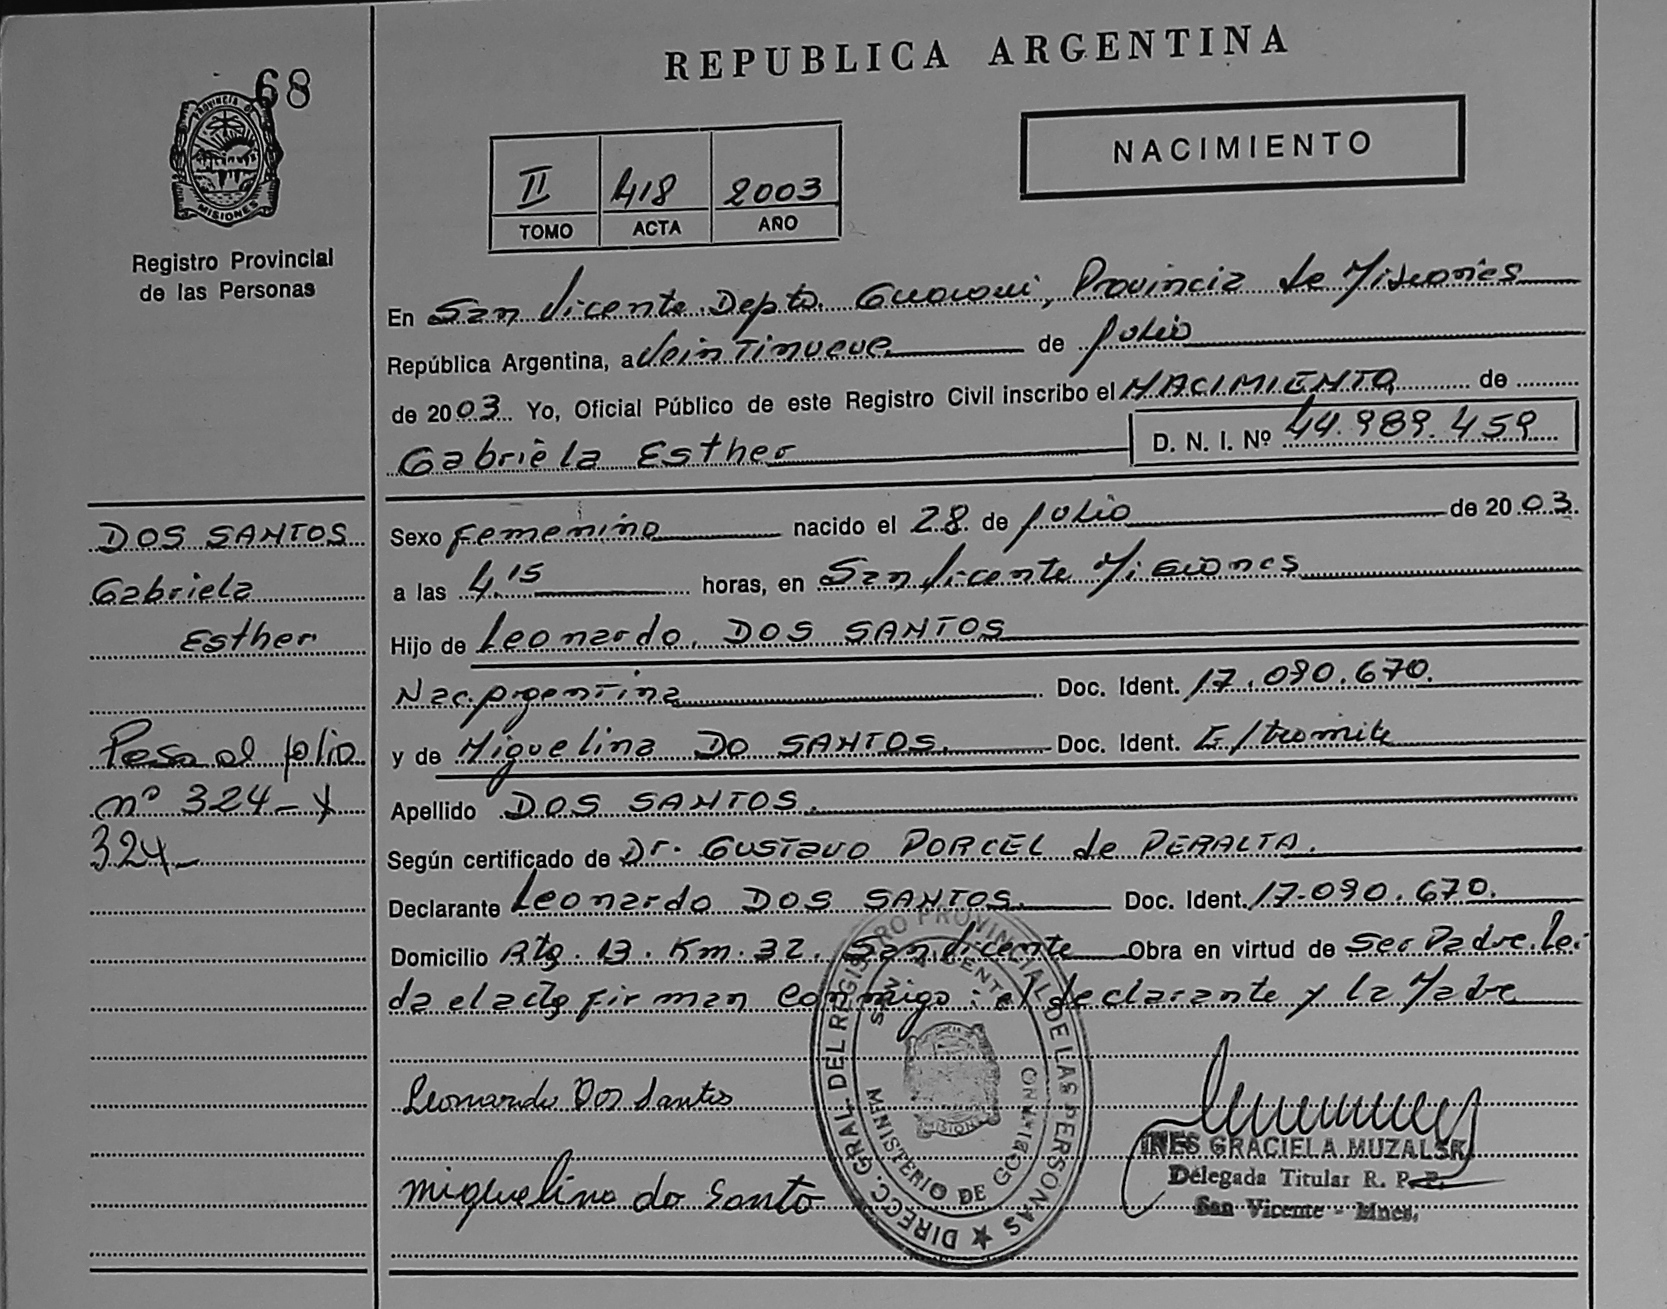 REPUBLICA ARGENTINA
68
PROVINCIA DE
MISIONES
Registro Provincial
de las Personas
NACIMIENTO
II 418 2003
TOMO ACTA AÑO
En San Vicente Depto. Guaraní, Provincia de Misiones
República Argentina, a Veintinueve de Julio
de 2003 Yo, Oficial Público de este Registro Civil inscribo el NACIMIENTO de
Gabriela Esther D. N. I. Nº 44.989.459
DOS SANTOS
Gabriela
Esther
Pasa al folio
nº 324 - y
324 -
Sexo femenino nacido el 28 de Julio de 2003.
a las 4,15 horas, en San Vicente Misiones
Hijo de Leonardo DOS SANTOS
Nac. Argentina Doc. Ident. 17.090.670.
y de Miguelina DO SANTOS. Doc. Ident. E/tramite
Apellido DOS SANTOS.
Según certificado de Dr. GUSTAVO PORCEL de PERALTA.
Declarante Leonardo DOS SANTOS. Doc. Ident. 17.090.670.
Domicilio Rta. 13. Km. 32. San Vicente Obra en virtud de Ser Padre. Lei
da el acta firman conmigo: el declarante y la Madre
Leonardo Dos Santos
miguelina do Santo
DIRECC. GRAL. DEL REGISTRO PROVINCIAL DE LAS PERSONAS
MINISTERIO DE GOBIERNO
MISIONES
INES GRACIELA MUZALSKI
Delegada Titular R. P. P.
San Vicente - Mnes.